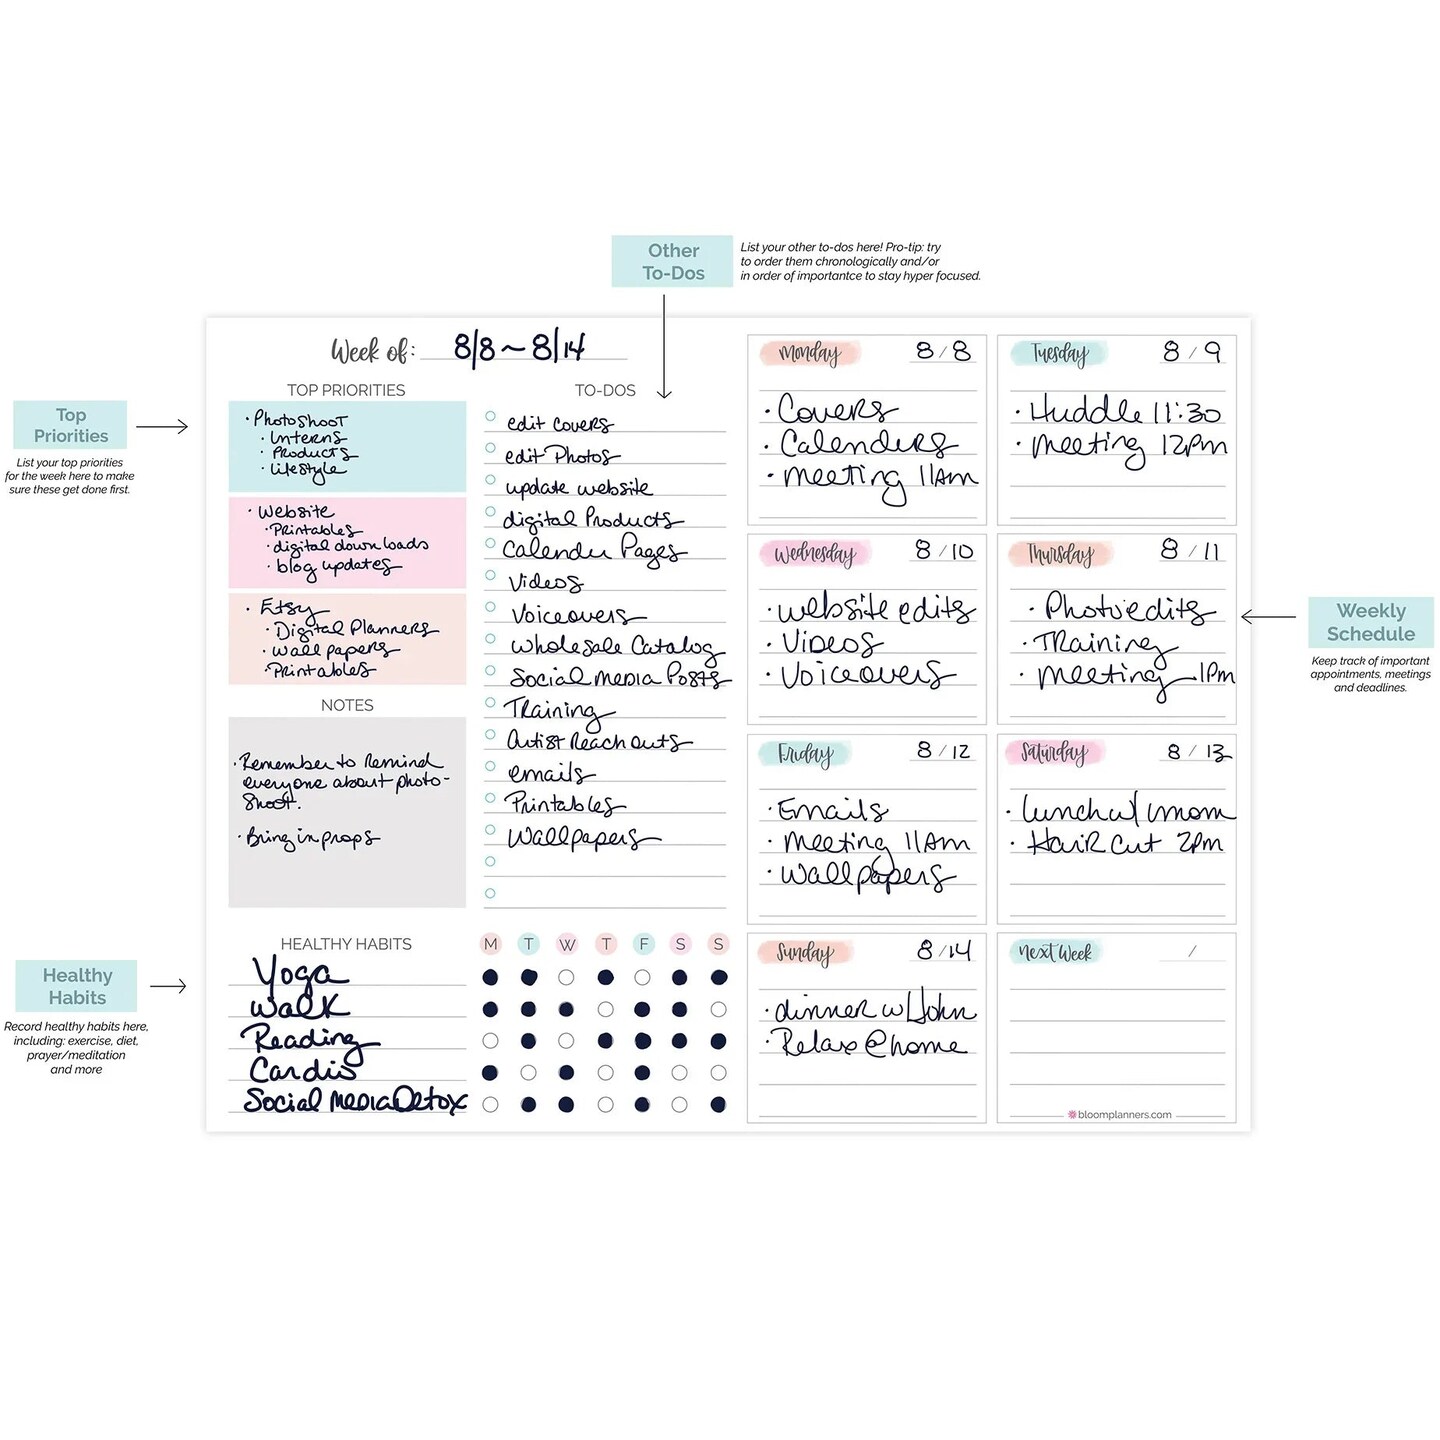 Other
To-Dos
List your other to-dos here! Pro-tip: try
to order them chronologically and/or
in order of importance to stay hyper focused.
Top
Priorities
List your top priorities
for the week here to make
sure these get done first.
Healthy
Habits
Record healthy habits here,
including: exercise, diet,
prayer/meditation
and more
Week of: 8/8 ~ 8/14
TOP PRIORITIES
• Photoshoot
• Interns
• Products
• Lifestyle
• Website
• Printables
• digital downloads
• blog updates
• Etsy
• Digital Planners
• wallpapers
• Printables
NOTES
• Remember to Remind
everyone about photo-
shoot.
• Bring in props
TO-DOS
edit covers
edit Photos
update website
digital Products
Calender Pages
Videos
Voiceovers
wholesale Catalog
Social media Posts
Training
Artist Reach outs
emails
Printables
Wallpapers
HEALTHY HABITS M T W T F S S
Yoga
Walk
Reading
Cardio
Social Media Detox
Monday 8/8
• Covers
• Calenders
• meeting 11AM
Tuesday 8/9
• Huddle 11:30
• meeting 12pm
Wednesday 8/10
• website edits
• Videos
• Voiceovers
Thursday 8/11
• Photo edits
• Training
• meeting 1pm
Friday 8/12
• Emails
• meeting 11AM
• wallpapers
Saturday 8/13
• lunch w/ mom
• Hair Cut 2pm
Sunday 8/14
• dinner w/ John
• Relax @ home
next Week /
bloomplanners.com
Weekly
Schedule
Keep track of important
appointments, meetings
and deadlines.